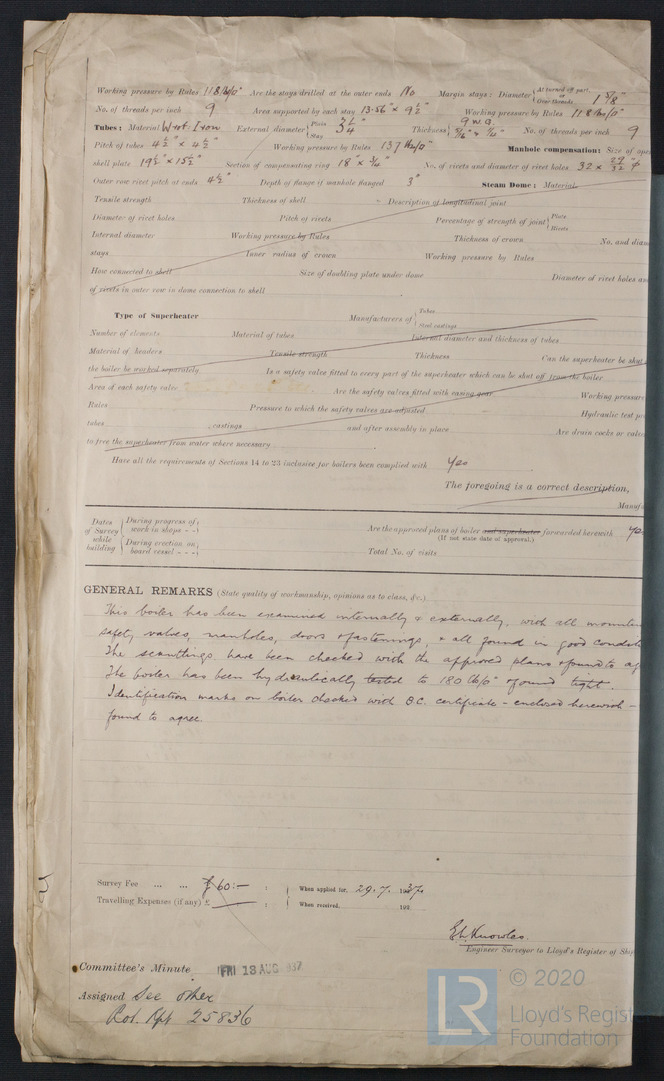 Working pressure by Rules 118 lb/□" Are the stays drilled at the outer ends No Margin stays: Diameter { At turned off part, or Over threads 1 5/8"
No. of threads per inch 9 Area supported by each stay 13.56" × 9 1/2" Working pressure by Rules 118 lb/□"
Tubes: Material Wrot Iron External diameter { Plain Stay 3 1/4" Thickness { 9 W.G. 5/16" & 1/4" No. of threads per inch 9
Pitch of tubes 4 1/2" × 4 1/2" Working pressure by Rules 137 lb/□" Manhole compensation: Size of ope
shell plate 19 1/2" × 15 1/2" Section of compensating ring 18" × 3/4" No. of rivets and diameter of rivet holes 32 × 29/32" φ
Outer row rivet pitch at ends 4 1/2" Depth of flange if manhole flanged 3" Steam Dome: Material
Tensile strength Thickness of shell Description of longitudinal joint
Diameter of rivet holes Pitch of rivets Percentage of strength of joint { Plate Rivets
Internal diameter Working pressure by Rules Thickness of crown No. and diam
stays Inner radius of crown Working pressure by Rules
How connected to shell Size of doubling plate under dome Diameter of rivet holes an
of rivets in outer row in dome connection to shell
Type of Superheater Manufacturers of { Tubes Steel castings
Number of elements Material of tubes Internal diameter and thickness of tubes
Material of headers Tensile strength Thickness Can the superheater be shut
the boiler be worked separately Is a safety valve fitted to every part of the superheater which can be shut off from the boiler
Area of each safety valve Are the safety valves fitted with easing gear Working pressure
Rules Pressure to which the safety valves are adjusted Hydraulic test pr
tubes castings and after assembly in place Are drain cocks or valve
to free the superheater from water where necessary
Have all the requirements of Sections 14 to 23 inclusive for boilers been complied with Yes
The foregoing is a correct description,
Manuf
Dates of Survey while building { During progress of work in shops - - During erection on board vessel - - - Are the approved plans of boiler and superheater forwarded herewith Ye
(If not state date of approval.)
Total No. of visits
GENERAL REMARKS (State quality of workmanship, opinions as to class, &c.)
This boiler has been examined internally & externally, with all mountin
safety valves, manholes, doors & fastenings, & all found in good condit
The scantlings have been checked with the approved plans & found to ag
The boiler has been hydraulically tested to 180 lb/□" & found tight.
Identification marks on boiler checked with B.C. certificate - enclosed herewith -
found to agree.
Survey Fee ... ... £60:- : When applied for, 29.7.1937.
Travelling Expenses (if any) £ : When received, 193
E.W. Knowles.
Engineer Surveyor to Lloyd's Register of Ship
Committee's Minute FRI 13 AUG 1937
Assigned See other
Rot. Rpt 25836
LR
© 2020
Lloyd's Regist
Foundation